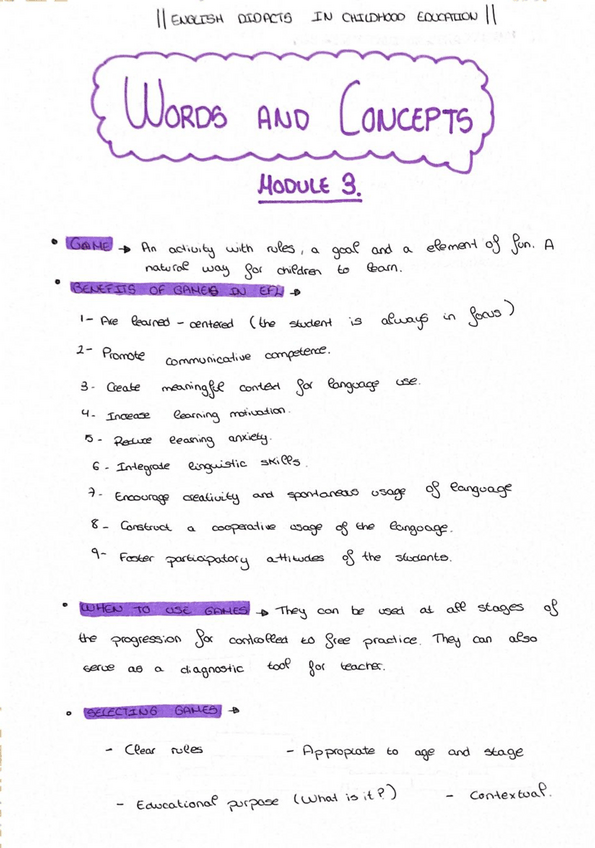 || ENGLISH DIDACTS IN CHILDHOOD EDUCATION ||
WORDS AND CONCEPTS
MODULE 3.
• GAME → An activity with rules, a goal and a element of fun. A
natural way for children to learn.
• BENEFITS OF GAMES IN EFL →
1- Are learned - centered (the student is always in focus)
2- Promote communicative competence.
3- Create meaningful context for language use.
4- Increase learning motivation.
5- Reduce learning anxiety.
6- Integrate linguistic skills.
7- Encourage creativity and spontaneous usage of language
8- Construct a cooperative usage of the language.
9- Foster participatory attitudes of the students.
• WHEN TO USE GAMES → They can be used at all stages of
the progression for controlled to free practice. They can also
serve as a diagnostic tool for teacher.
• SELECTING GAMES →
- Clear rules - Appropiate to age and stage
- Educational purpose (What is it?) - Contextual.